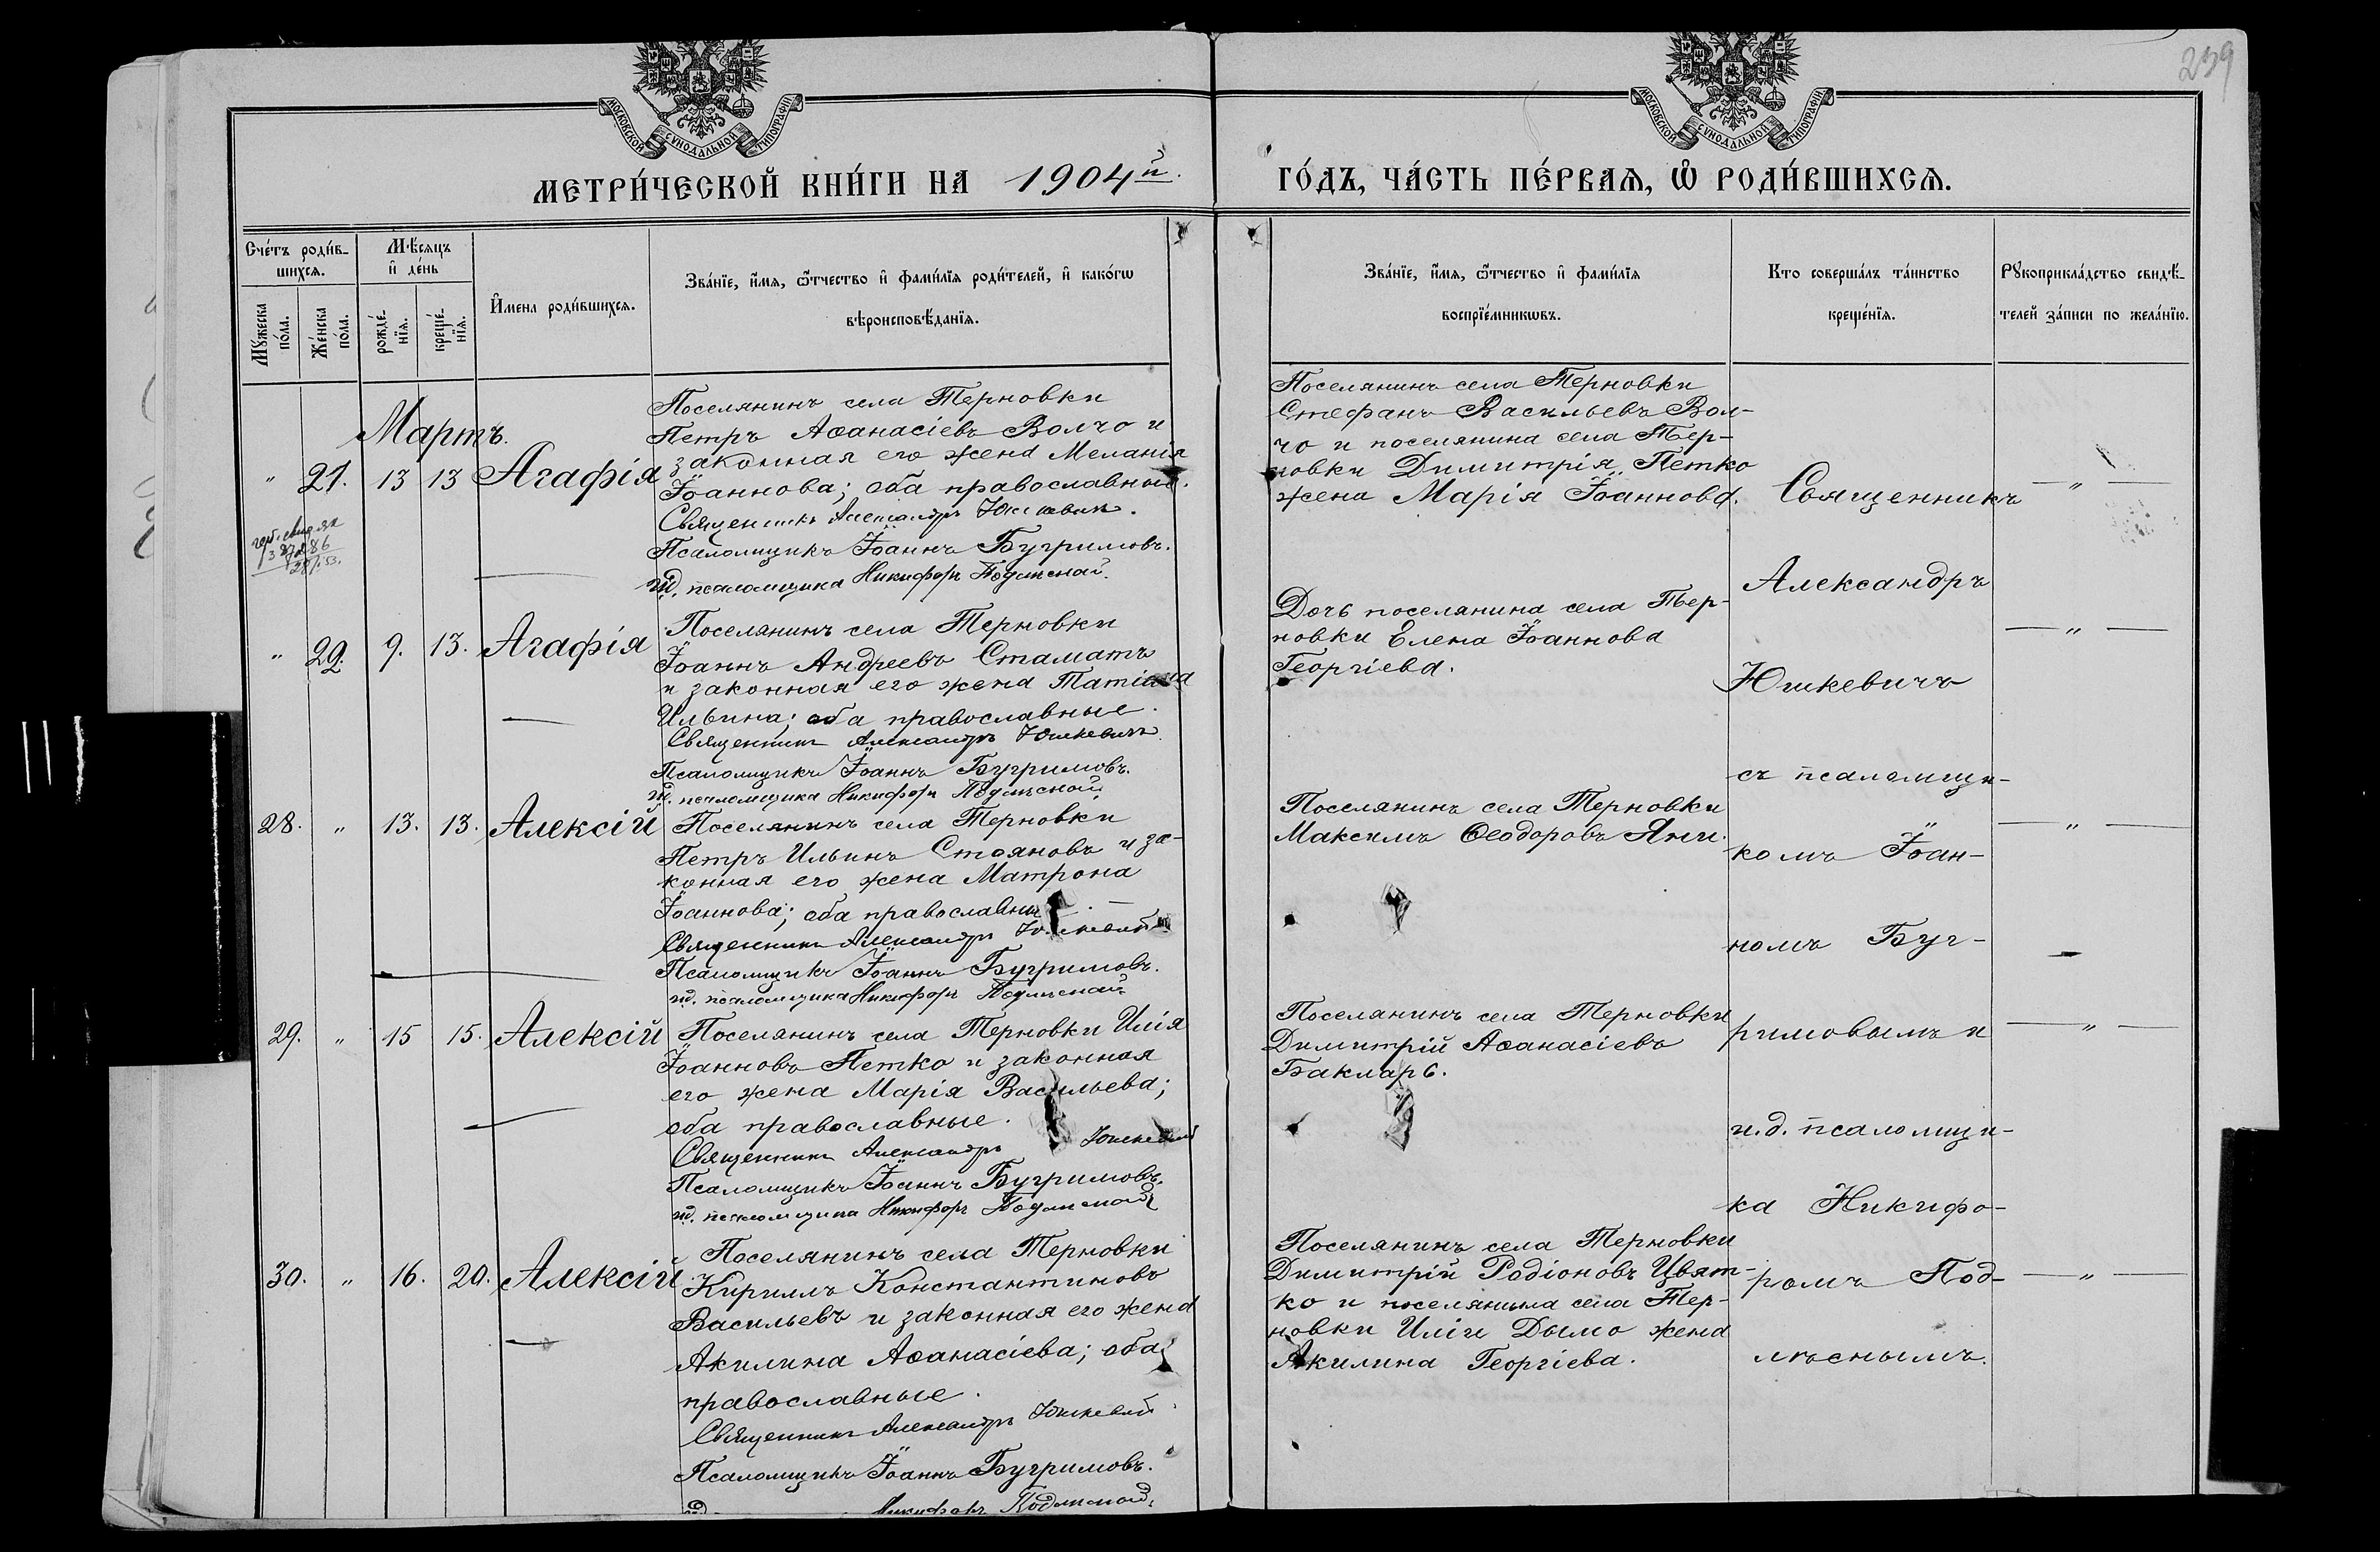 239
МОСКОВСКОЙ СУНОДАЛЬНОЙ ТИПОГРАФІИ
МОСКОВСКОЙ СУНОДАЛЬНОЙ ТИПОГРАФІИ
МЕТРИ́ЧЕСКОЙ КНИ́ГИ НА 1904й.
ГО́ДЪ, ЧА́СТЬ ПЕ́РВАѦ, Ѽ РОДИ́ВШИХСѦ.
Сче́тъ роди́в-
шихсѧ.
Мꙋ́жеска по́ла.
Же́нска по́ла.
Мѣ́сѧцъ
и҆ де́нь
рожде́-
нїѧ.
креще́-
нїѧ.
И҆мена роди́вшихсѧ.
Зва́нїе, и҆́мѧ, ѻ҆́тчество и҆ фами́лїѧ роди́телей, и҆ како́гѡ
вѣроисповѣ́данїѧ.
Зва́нїе, и҆́мѧ, ѻ҆́тчество и҆ фами́лїѧ
воспрїе́мникѡвъ.
Кто соверша́лъ та́инство
креще́нїѧ.
Рꙋкоприкла́дство свидѣ́-
телей за́писи по жела́нїю.
Мартъ.
" 21. 13 13 Агафія
Поселянинъ села Терновки
Петръ Аѳанасіевъ Волчо и
законная его жена Меланія
Іоаннова; оба православные.
Священникъ Александръ Юшкевичъ.
Псаломщикъ Іоаннъ Бугримовъ.
и.д. псаломщика Никифоръ Подлѣсной.
Поселянинъ села Терновки
Стефанъ Васильевъ Вол-
чо и поселянина села Тер-
новки Димитрія Петко
жена Марія Іоаннова.
— " —
" 22. 9. 13. Агафія
Поселянинъ села Терновки
Іоаннъ Андреевъ Стаматъ
и законная его жена Татіана
Ильина; оба православные.
Священникъ Александръ Юшкевичъ.
Псаломщикъ Іоаннъ Бугримовъ.
и.д. псаломщика Никифоръ Подлѣсной.
Дочь поселянина села Тер-
новки Елена Іоаннова
Георгіева.
— " —
28. " 13. 13. Алексій
Поселянинъ села Терновки
Петръ Ильинъ Стояновъ и за-
конная его жена Матрона
Іоаннова; оба православны
Священникъ Александръ Юшкевичъ
Псаломщикъ Іоаннъ Бугримовъ.
и.д. псаломщика Никифоръ Подлѣсной
Поселянинъ села Терновки
Максимъ Ѳеодоровъ Яни.
— " —
29. " 15 15. Алексій
Поселянинъ села Терновки Илія
Іоанновъ Петко и законная
его жена Марія Васильева;
оба православные.
Священникъ Александръ Юшкевичъ
Псаломщикъ Іоаннъ Бугримовъ.
и.д. псаломщика Никифоръ Подлѣсной
Поселянинъ села Терновки
Димитрій Аѳанасіевъ
Бакларь.
— " —
30. " 16. 20. Алексій
Поселянинъ села Терновки
Кириллъ Константиновъ
Васильевъ и законная его жена
Акилина Аѳанасіева; оба
православные.
Священникъ Александръ Юшкевичъ
Псаломщикъ Іоаннъ Бугримовъ.
Никифоръ Подлѣсной.
Поселянинъ села Терновки
Димитрій Родіоновъ Цвят-
ко и поселянина села Тер-
новки Иліи Дымо жена
Акилина Георгіева.
— " —
Священникъ
Александръ
Юшкевичъ
съ псаломщи-
комъ Іоан-
номъ Буг-
римовымъ и
и.д. псаломщи-
ка Никифо-
ромъ Под-
лѣснымъ.